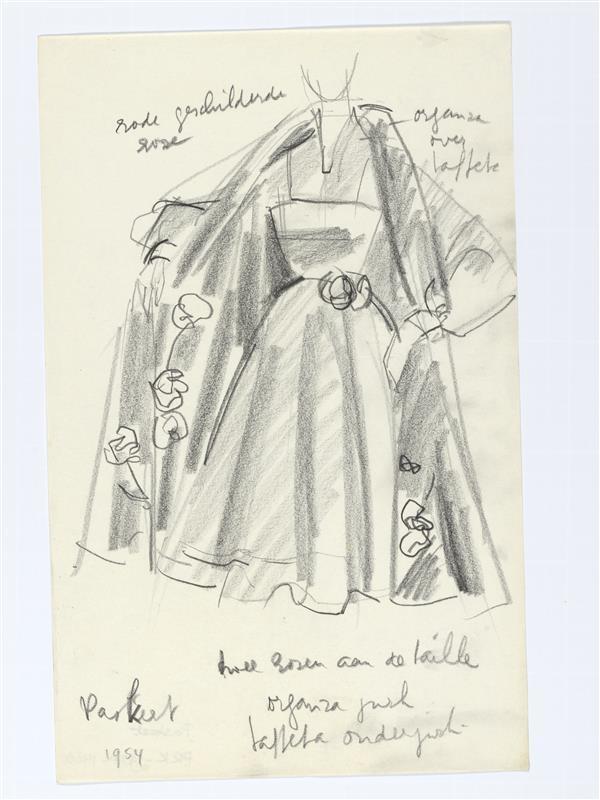 rode geschilderde
roze
organza
over
taffeta
twee rozen aan de taille
organza jurk
taffeta onderjurk.
Parkeet
1954